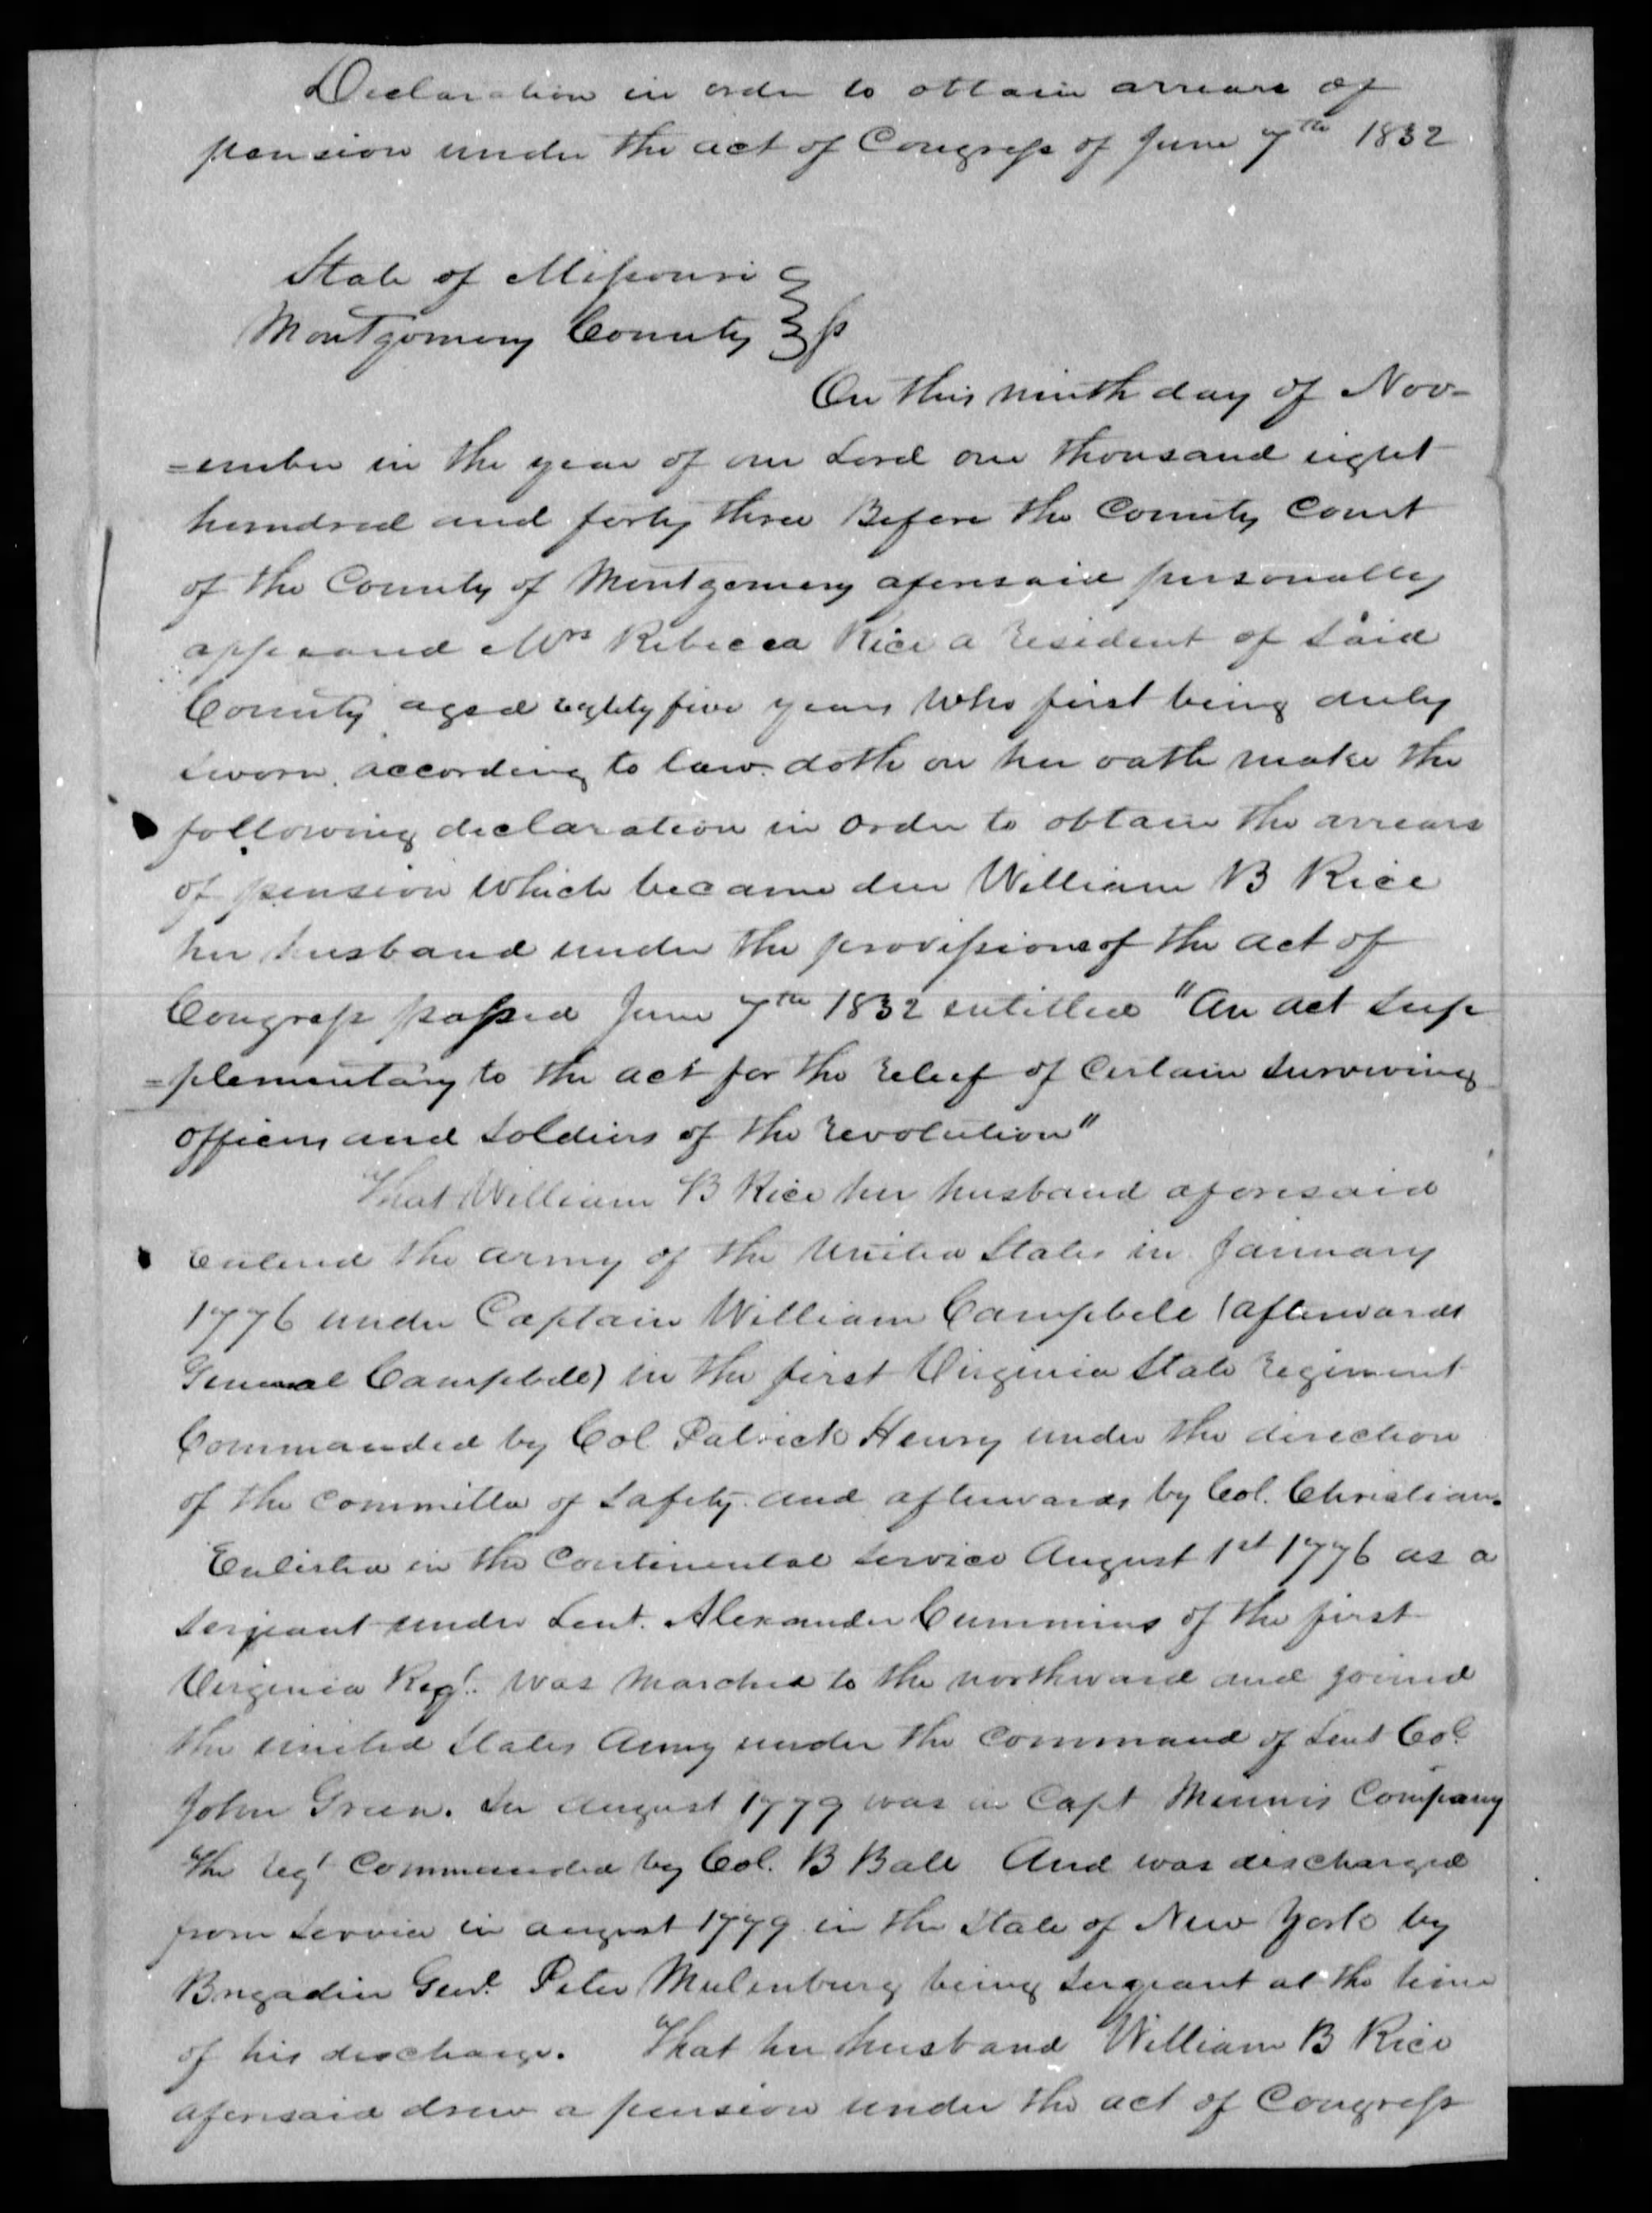 Declaration in order to obtain arrears of
pension under the act of Congress of June 7th 1832
State of Missouri
Montgomery County } ss
On this ninth day of Nov-
=ember in the year of our Lord one thousand eight
hundred and forty three Before the County Court
of the County of Montgomery aforesaid personally
appeared Mrs Rebecca Rice a resident of said
County aged eighty five years who first being duly
sworn according to law doth on her oath make the
following declaration in order to obtain the arrears
of pension which became due William B Rice
her husband under the provissions of the act of
Congress passed June 7th 1832 entitled "An act sup
=plementary to the act for the relief of Certain surviving
officers and soldiers of the revolution"
That William B Rice her husband aforesaid
Entered the army of the United States in January
1776 under Captain William Campbell (afterwards
General Campbell) in the first Virginia State regiment
Commanded by Col Patrick Henry under the direction
of the committee of safety and afterwards by Col. Christian.
Enlisted in the Continental service August 1st 1776 as a
sergeant under Leut. Alexander Cummins of the first
Virginia Regt. was marched to the northward and joined
the united States Army under the command of Leut Col
John Green. In August 1779 was in Capt Minnis Company
the regt commanded by Col. B Ball And was discharged
from service in august 1779 in the State of New York by
Brigadier Genl. Peter Mulenburg being sergeant at the time
of his discharge. That her husband William B Rice
aforesaid drew a pension under the act of Congress